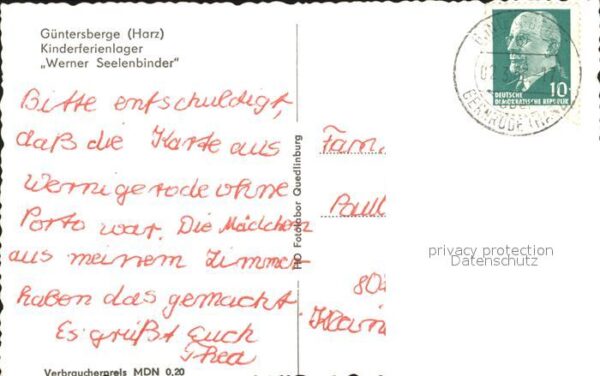 Güntersberge (Harz)
Kinderferienlager
„Werner Seelenbinder"
Bitte entschuldigt,
daß die Karte aus
Wernigerode ohne
Porto war. Die Mädchen
aus meinem Zimmer
haben das gemacht.
Es grüßt Euch
Thea
Verbraucherpreis MDN 0,20
Fotolabor Quedlinburg
Fam.
DEUTSCHE
DEMOKRATISCHE REPUBLIK
10
privacy protection
Datenschutz